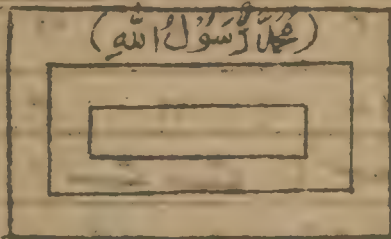 (مُحَمَّدٌ رَّسُولُ اللّٰهِ)